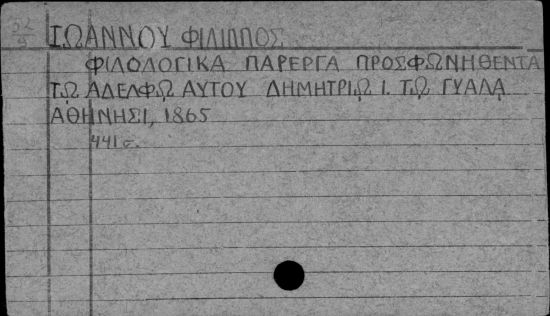 52
9
ΙΩΑΝΝΟΥ ΦΙΛΙΠΠΟΣ
ΦΙΛΟΛΟΓΙΚΑ ΠΑΡΕΡΓΑ ΠΡΟΣΦΩΝΗΘΕΝΤΑ
Τῼ ΑΔΕΛΦῼ ΑΥΤΟΥ ΔΗΜΗΤΡΙῼ Ι. Τῼ ΓΥΑΛᾼ
ΑΘΗΝΗΣΙ, 1865
441 σ.